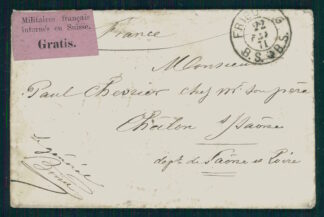 Militaires français
internés en Suisse.
Gratis.
France
22
71
B.S. JBS.
Monsieur
Paul Chevrier chez mr son père
Châlon s/Saône
dept de Saône et Loire
Le général